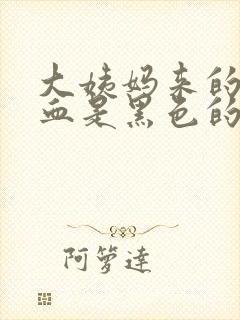 大姨妈来的
血是黑色的
阿箩達